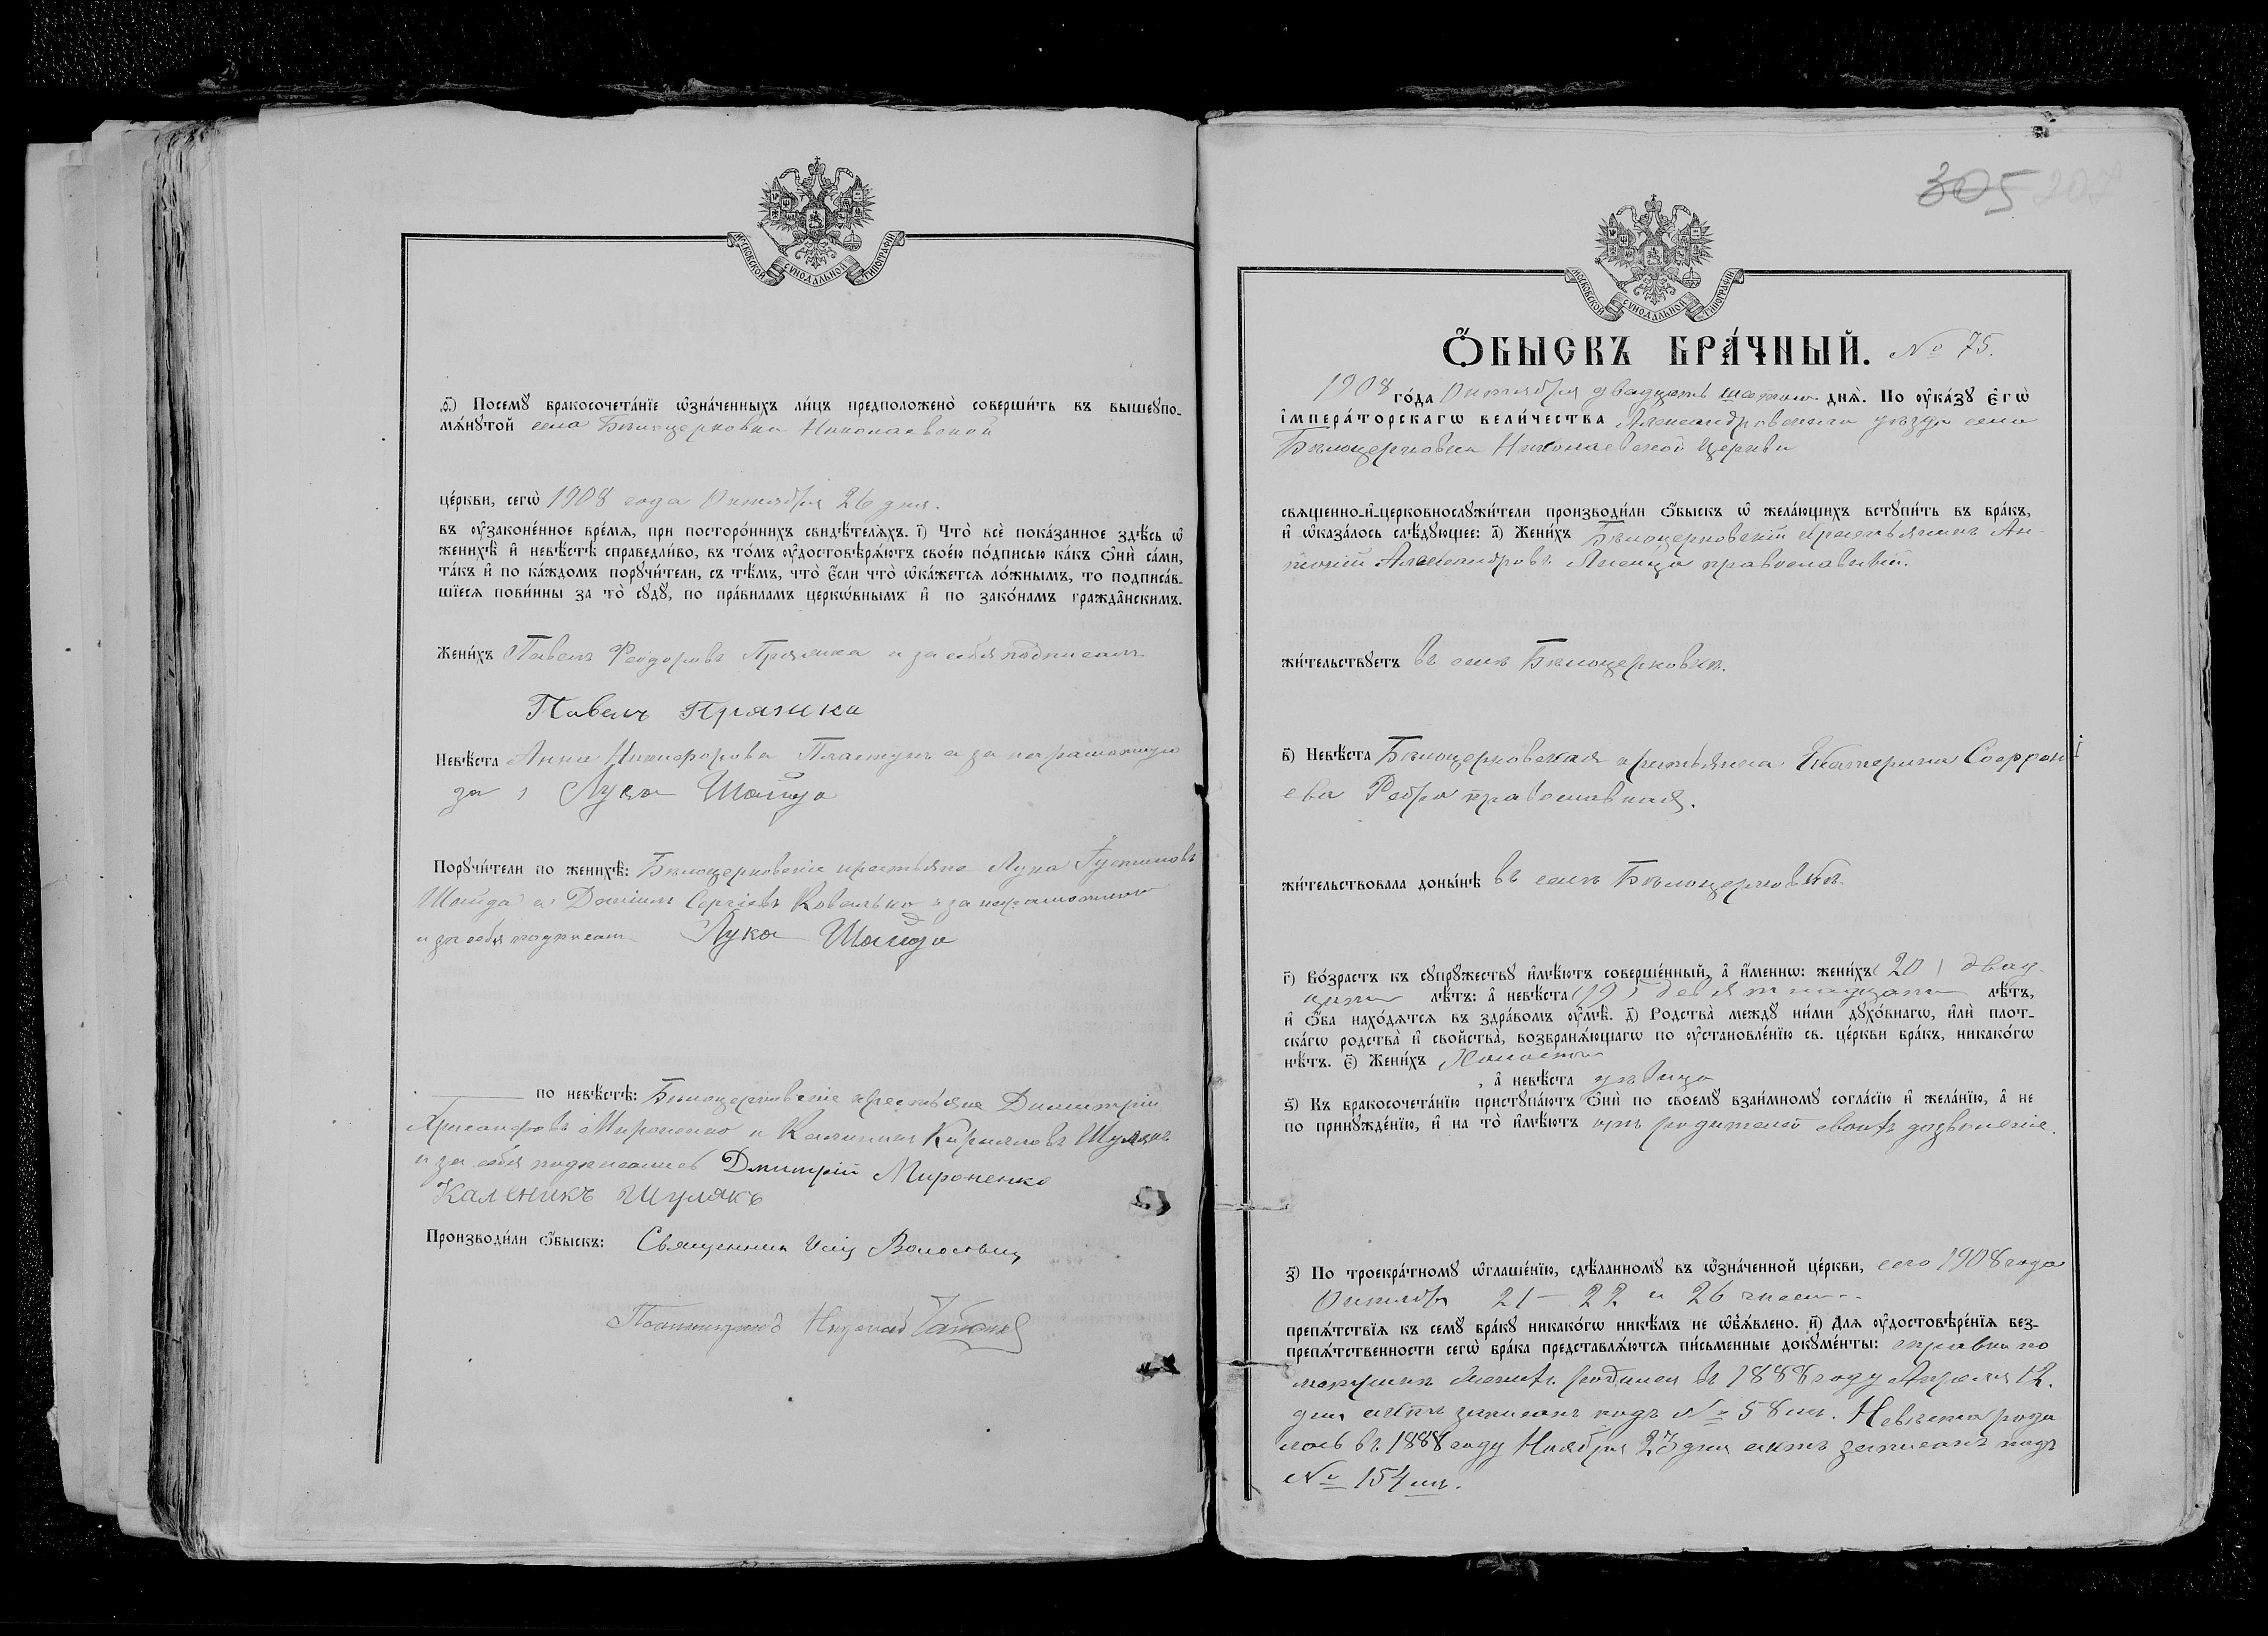 МОСКОВСКОЙ СУНОДАЛЬНОЙ ТИПОГРАФІИ
ѳ҃) Посемꙋ̀ бракосочета́нїе ѡ҆зна́ченныхъ ли́цъ предположено̀ соверши́ть въ вышеꙋпо-
мѧ́нꙋтой села Бѣлоцерковки Николаевской
це́ркви, сегѡ̀ 1908 года Октября 26 дня.
въ ᲂу҆законе́нное вре́мѧ, при посторо́ннихъ свидѣ́телѧхъ. і҃) Что̀ всѐ пока́занное здѣ́сь ѡ҆
женихѣ̀ и҆ невѣ́стѣ справедли́во, въ то́мъ ᲂу҆достовѣрѧ́ютъ свое́ю по́дписью ка́къ ѻ҆нѝ са́ми,
та́къ и҆ по ка́ждомъ порꙋчи́тели, съ тѣ́мъ, что̀ є҆́сли что̀ ѡ҆ка́жетсѧ ло́жнымъ, то подписа́в-
шїесѧ пови́нны за то̀ сꙋдꙋ̀, по пра́виламъ церкѡ́внымъ и҆ по зако́намъ гражда̑нскимъ.
Жени́хъ Павелъ Феодоровъ Прянка и за себя подписалъ
Павелъ Прянка
Невѣ́ста Анна Никифорова Пластунъ а за неграмотную
за Лука Шайда
Порꙋчи́тели по женихѣ̀: Бѣлоцерковскіе крестьяне Лука Іустиновъ
Шайда и Даніилъ Сергіевъ Ковалько и за неграмотнаго
и за себя подписалъ Лука Шайда
по невѣ́стѣ: Бѣлоцерковскіе крестьяне Димитрій
Александровъ Мироненко и Калинникъ Кирилловъ Шулякъ
и за себя подписались Дмитрій Мироненко
Каленикъ Шулякъ
Производи́ли ѻ҆́быскъ: Священникъ
Псаломщикъ Николай
305
МОСКОВСКОЙ СУНОДАЛЬНОЙ ТИПОГРАФІИ
Ѻ҆́БЫСКЪ БРА́ЧНЫЙ. № 75.
1908 го́да Октября двадцать шестого днѧ̀. По ᲂу҆ка́зꙋ Є҆гѡ̀
І҆мпера́торскагѡ вели́чества Александровскаго уѣзда села
Бѣлоцерковки Николаевской церкви
свѧщенно-и҆-церковнослꙋжи́тели производи́ли ѻ҆́быскъ ѡ҆ жела́ющихъ встꙋпи́ть въ бра́къ,
и҆ ѡ҆каза́лось слѣ́дꙋющее: а҃) Жени́хъ Бѣлоцерковскій крестьянинъ Ан-
тоній Александровъ Лисица православный.
жи́тельствꙋетъ въ селѣ Бѣлоцерковкѣ.
в҃) Невѣ́ста Бѣлоцерковская крестьянка Екатерина Софрон і
ева Ребро православная.
жи́тельствовала доны́нѣ въ селѣ Бѣлоцерковкѣ.
г҃) Во́зрастъ къ сꙋпрꙋ́жествꙋ и҆мѣ́ютъ соверше́нный, а҆ и҆́меннѡ: жени́хъ (20) двад-
цати лѣ́тъ: а҆ невѣ́ста (19) девятнадцати лѣ́тъ,
и҆ ѻ҆́ба нахо́дѧтсѧ въ здра́вомъ ᲂу҆мѣ̀. д҃) Родства̀ междꙋ ни́ми дꙋхо́внагѡ, и҆лѝ плот-
ска́гѡ родства̀ и҆ сво́йства̀, возбранѧ́ющагѡ по ᲂу҆становле́нїю св. це́ркви бра́къ, никако́гѡ
нѣ́тъ. є҃) Жени́хъ Холостъ
, а҆ невѣ́ста дѣвица
ѕ҃) Къ бракосочета́нїю пристꙋпа́ютъ ѻ҆нѝ по своемꙋ̀ взаи́мномꙋ согла́сїю и҆ жела́нїю, а҆ не
по принꙋжде́нїю, и҆ на то̀ и҆мѣ́ютъ отъ родителей своихъ дозволеніе.
з҃) По троекра́тномꙋ ѡ҆глаше́нїю, сдѣ́ланномꙋ въ ѡ҆зна́ченной це́ркви, сего 1908 года
Октября 21 - 22 и 26 чиселъ
препѧ́тствїѧ къ семꙋ̀ бра́кꙋ никако́гѡ никѣ́мъ не ѡ҆б̾ѧ́влено. и҃) Длѧ ᲂу҆достовѣре́нїѧ без-
препѧ́тственности сегѡ̀ бра́ка представлѧ́ютсѧ пи́сьменные докꙋме́нты: справка по
метрикѣ Женихъ родился въ 1888 году Апреля 12.
дня актъ записанъ подъ № 58 мъ. Невѣста роди
лась въ 1888 году Ноября 23 дня актъ записанъ подъ
№ 154 мъ.